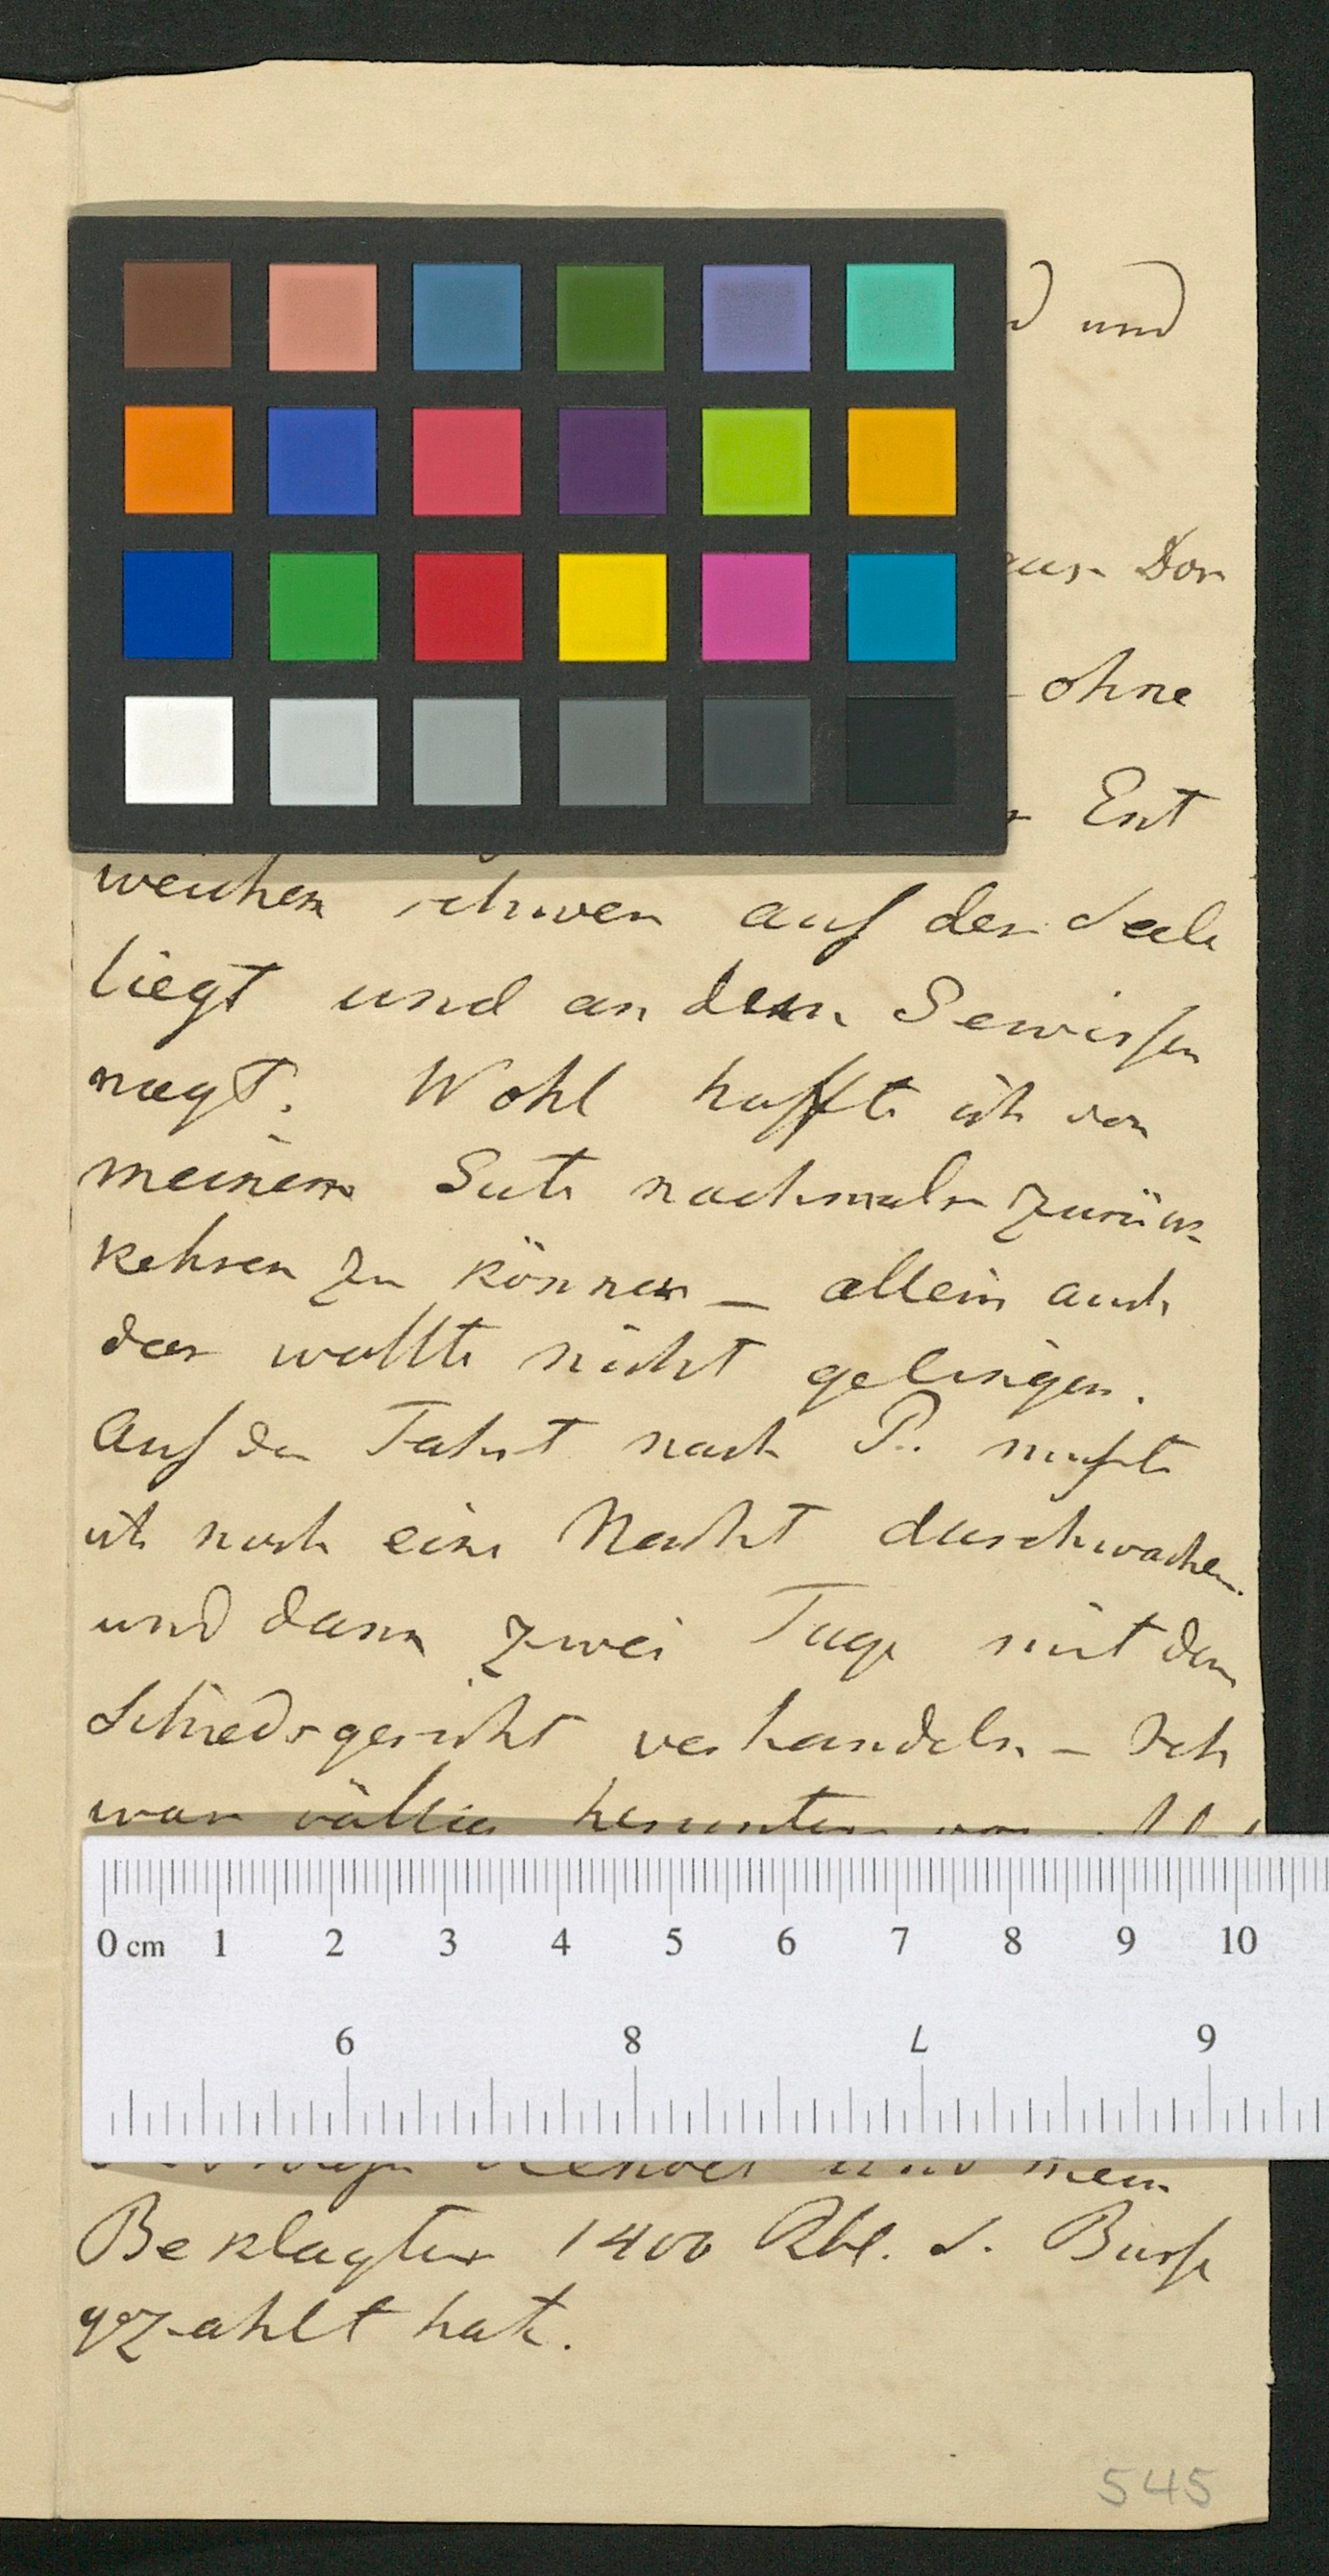 und
aus Dor
ohne
Ent
weichen schwer auf der Seele
liegt und an dem Gewissen
nagt. Wohl hoffte ich von
meinem Gute nochmals zurück
kehren zu können – allein auch
das wollte nicht gelingen.
Auf der Fahrt nach P. mußte
ich noch eine Nacht durchwachen
und dann zwei Tage mit dem
Schiedsgericht verhandeln – Ich
war völlig herunter
0 cm 1 2 3 4 5 6 7 8 9 10
6 8 7 9
und mein
Beklagter 1400 Rbl. S. Buße
gezahlt hat.
545